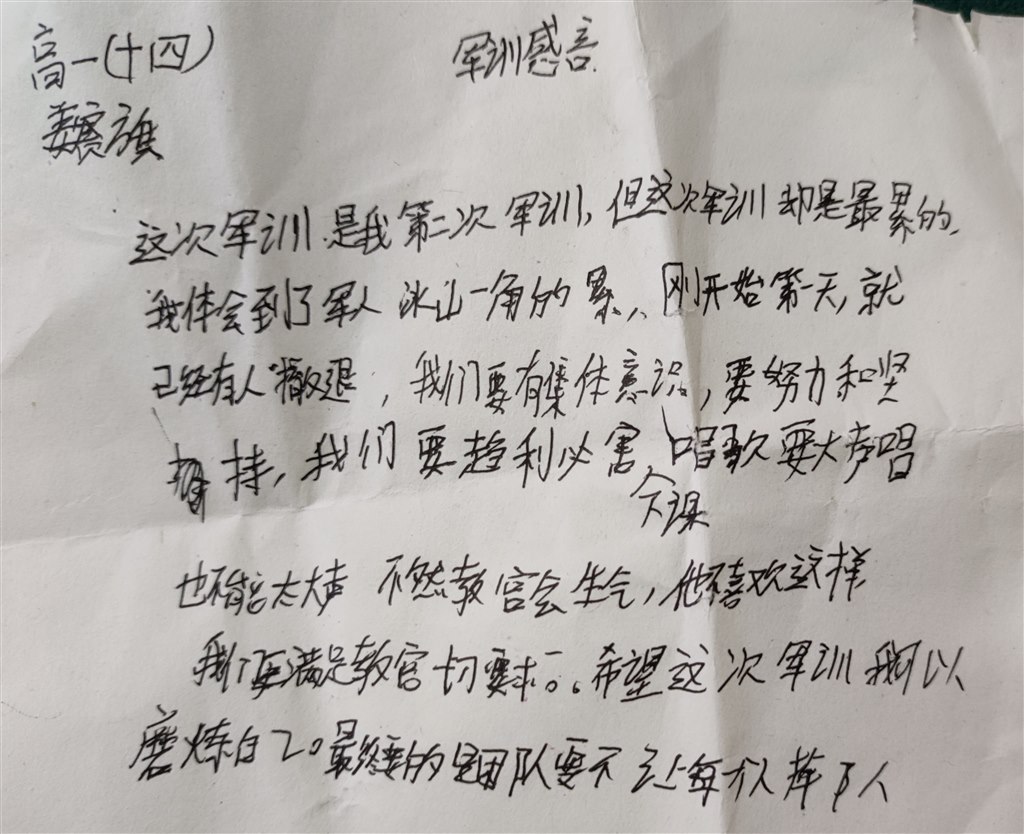 高一(十四)
军训感言
魏宾旗
这次军训是我第二次军训,但这次军训却是最累的,
我体会到了军人冰山一角的累,,刚开始第一天,就
已经有人“撤退,我们要有集体意识,要努力和坚
持,我们要趋利必害,唱歌要大声唱
下课
也不能太大声 不然教官会生气,他不喜欢这样
我们要满足教官一切要求。。希望这次军训我可以
磨炼自己。最终要的是团队要不让每个人掉队